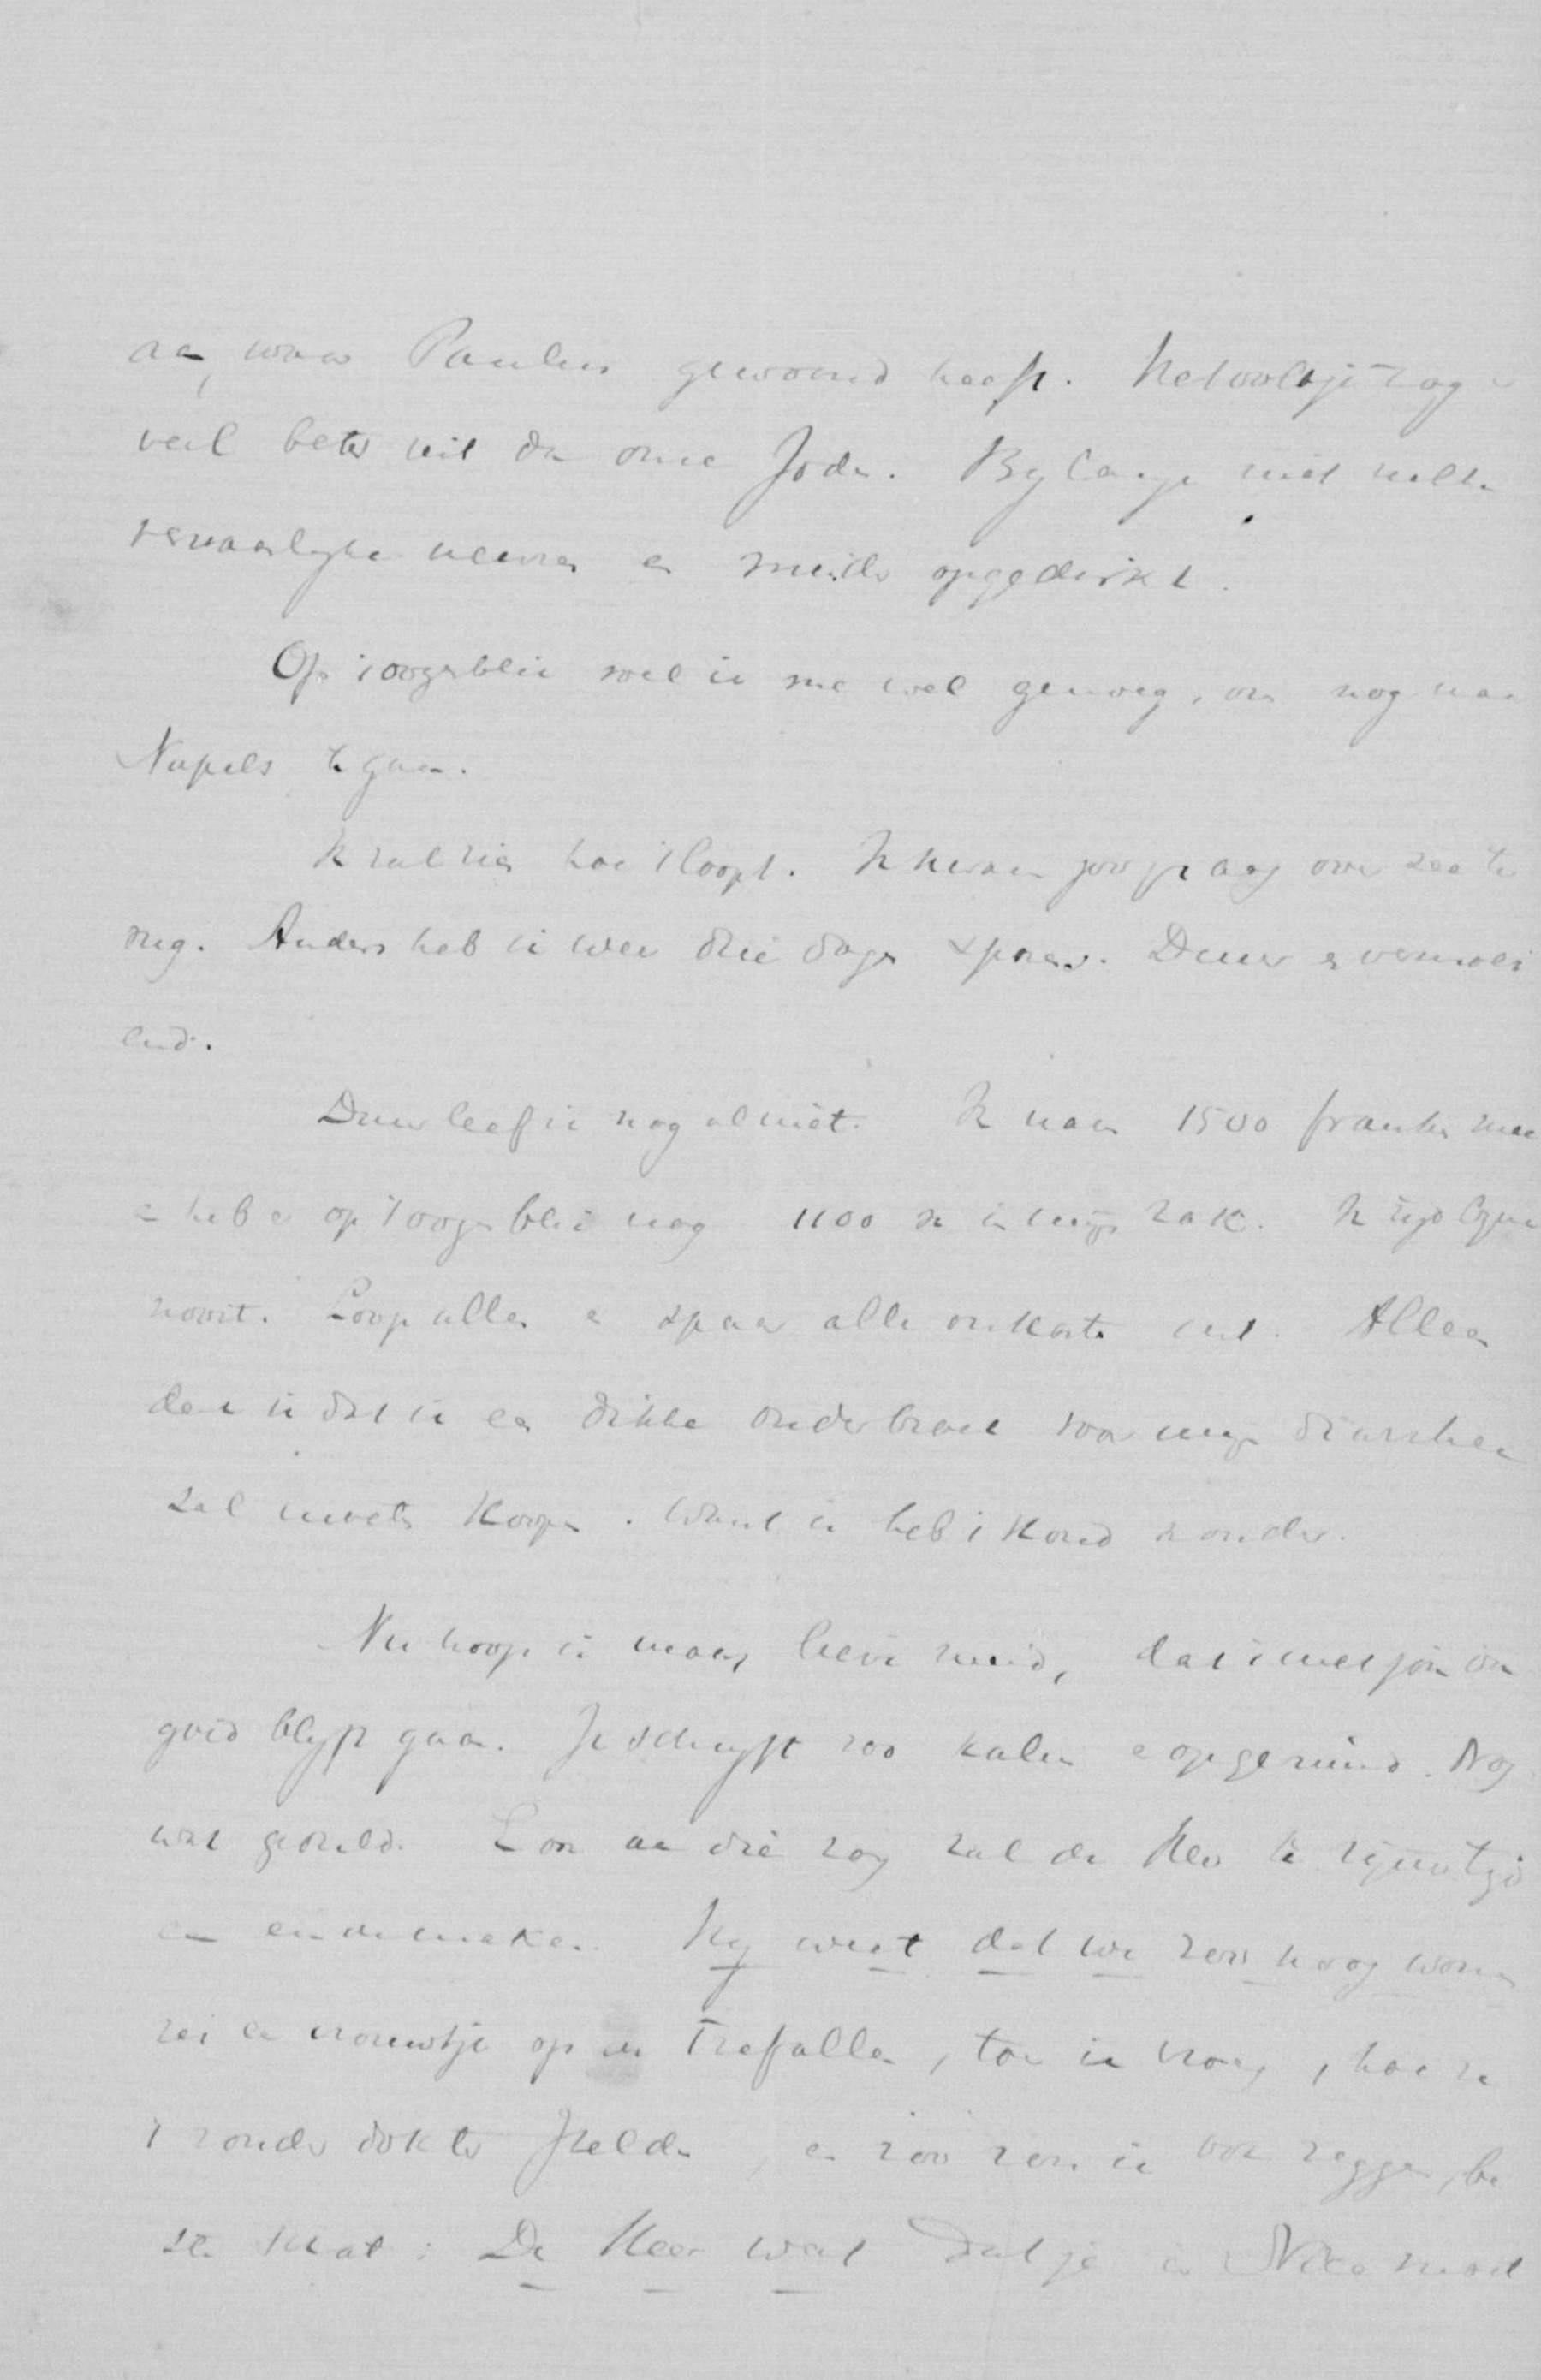 aan, waar Paulus gewoond heeft. Het volkje zag er
veel beter uit dan onze Joden. Bylange niet zulke
vervaarlyke neuzen en minder opgedirkt.
Op 't oogenblik voel ik me wel genoeg, om nog naar
Napels te gaan.
Ik zal zien hoe 't loopt. Ik kwam zoo graag over zee te
rug. Anders heb ik weer drie dagen spoor. Duur en vermoei
end.
Duur leef ik nog al niet. Ik nam 1500 franken mee
en heb er op 't oogenblik nog 1100 in myn zak. Ik ryd byna
nooit. Loop alles en spaar alle onkosten uit. Alleen
denk ik dat ik een dikke onderbroek voor myn diarrhee
zal moeten koopen. Want ik heb 't koud zonder.
Nu hoop ik maar, lieve meid, dat 't met jou ook
goed blyft gaan. Je schryft zoo kalm en opgeruimd. Nog
wat geduld. Kom aan die zog zal de Heer te zyner tyd
een einde maken. Hy weet dat we zoo hoog wonen
zei een vrouwtje op een Trefallen, toen ik vroeg, hoe ze
't zonder dokter stelden, en zoo zou ik ook zeggen, be
ste schat: De Heer weet dat je in Nice woont